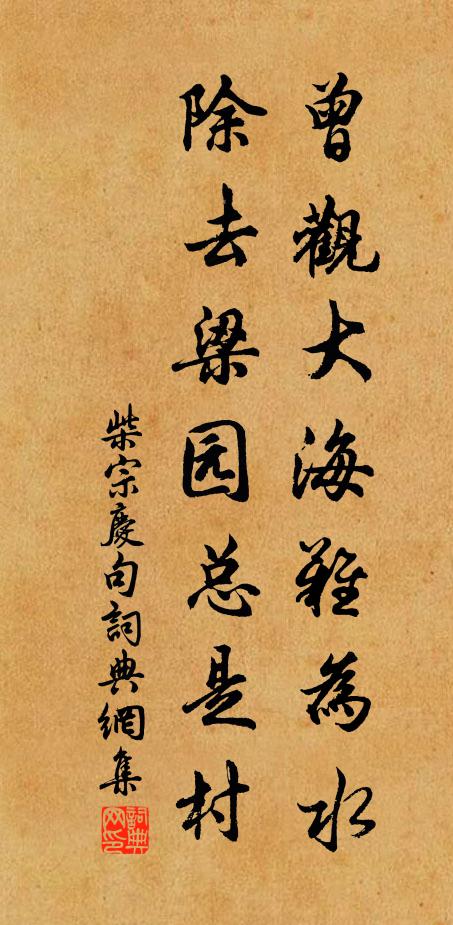 曾觀大海難為水
除去梁园总是村
柴宗慶句詞典網集
詞典网印